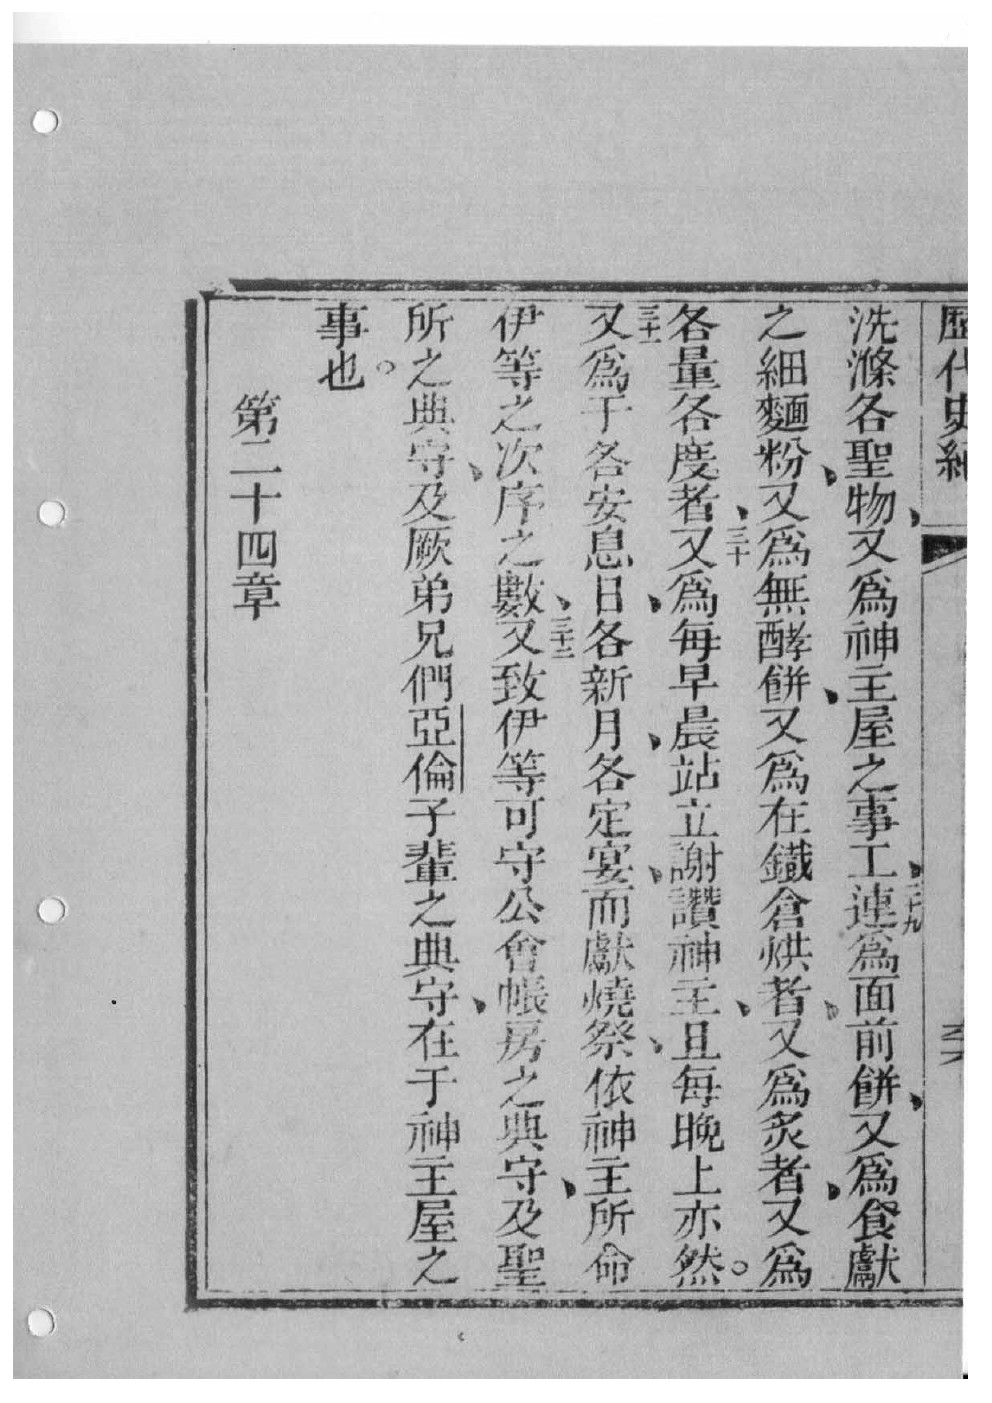 歷代史紀
洗滌各聖物、又爲神主屋之事工、二十九連爲面前餅、又爲食獻
之細麵粉、又爲無酵餅、又爲在鐵倉烘者、又爲炙者、又爲
各量各度者、三十又爲每早晨站立謝讚神主、且每晚上亦然。
三十一又爲于各安息日、各新月、各定宴、而獻燒祭、依神主所命
伊等之次序之數、三十二又致伊等可守公會帳房之典守、及聖
所之典守、及厥弟兄們亞倫子輩之典守、在于神主屋之
事也。
第二十四章